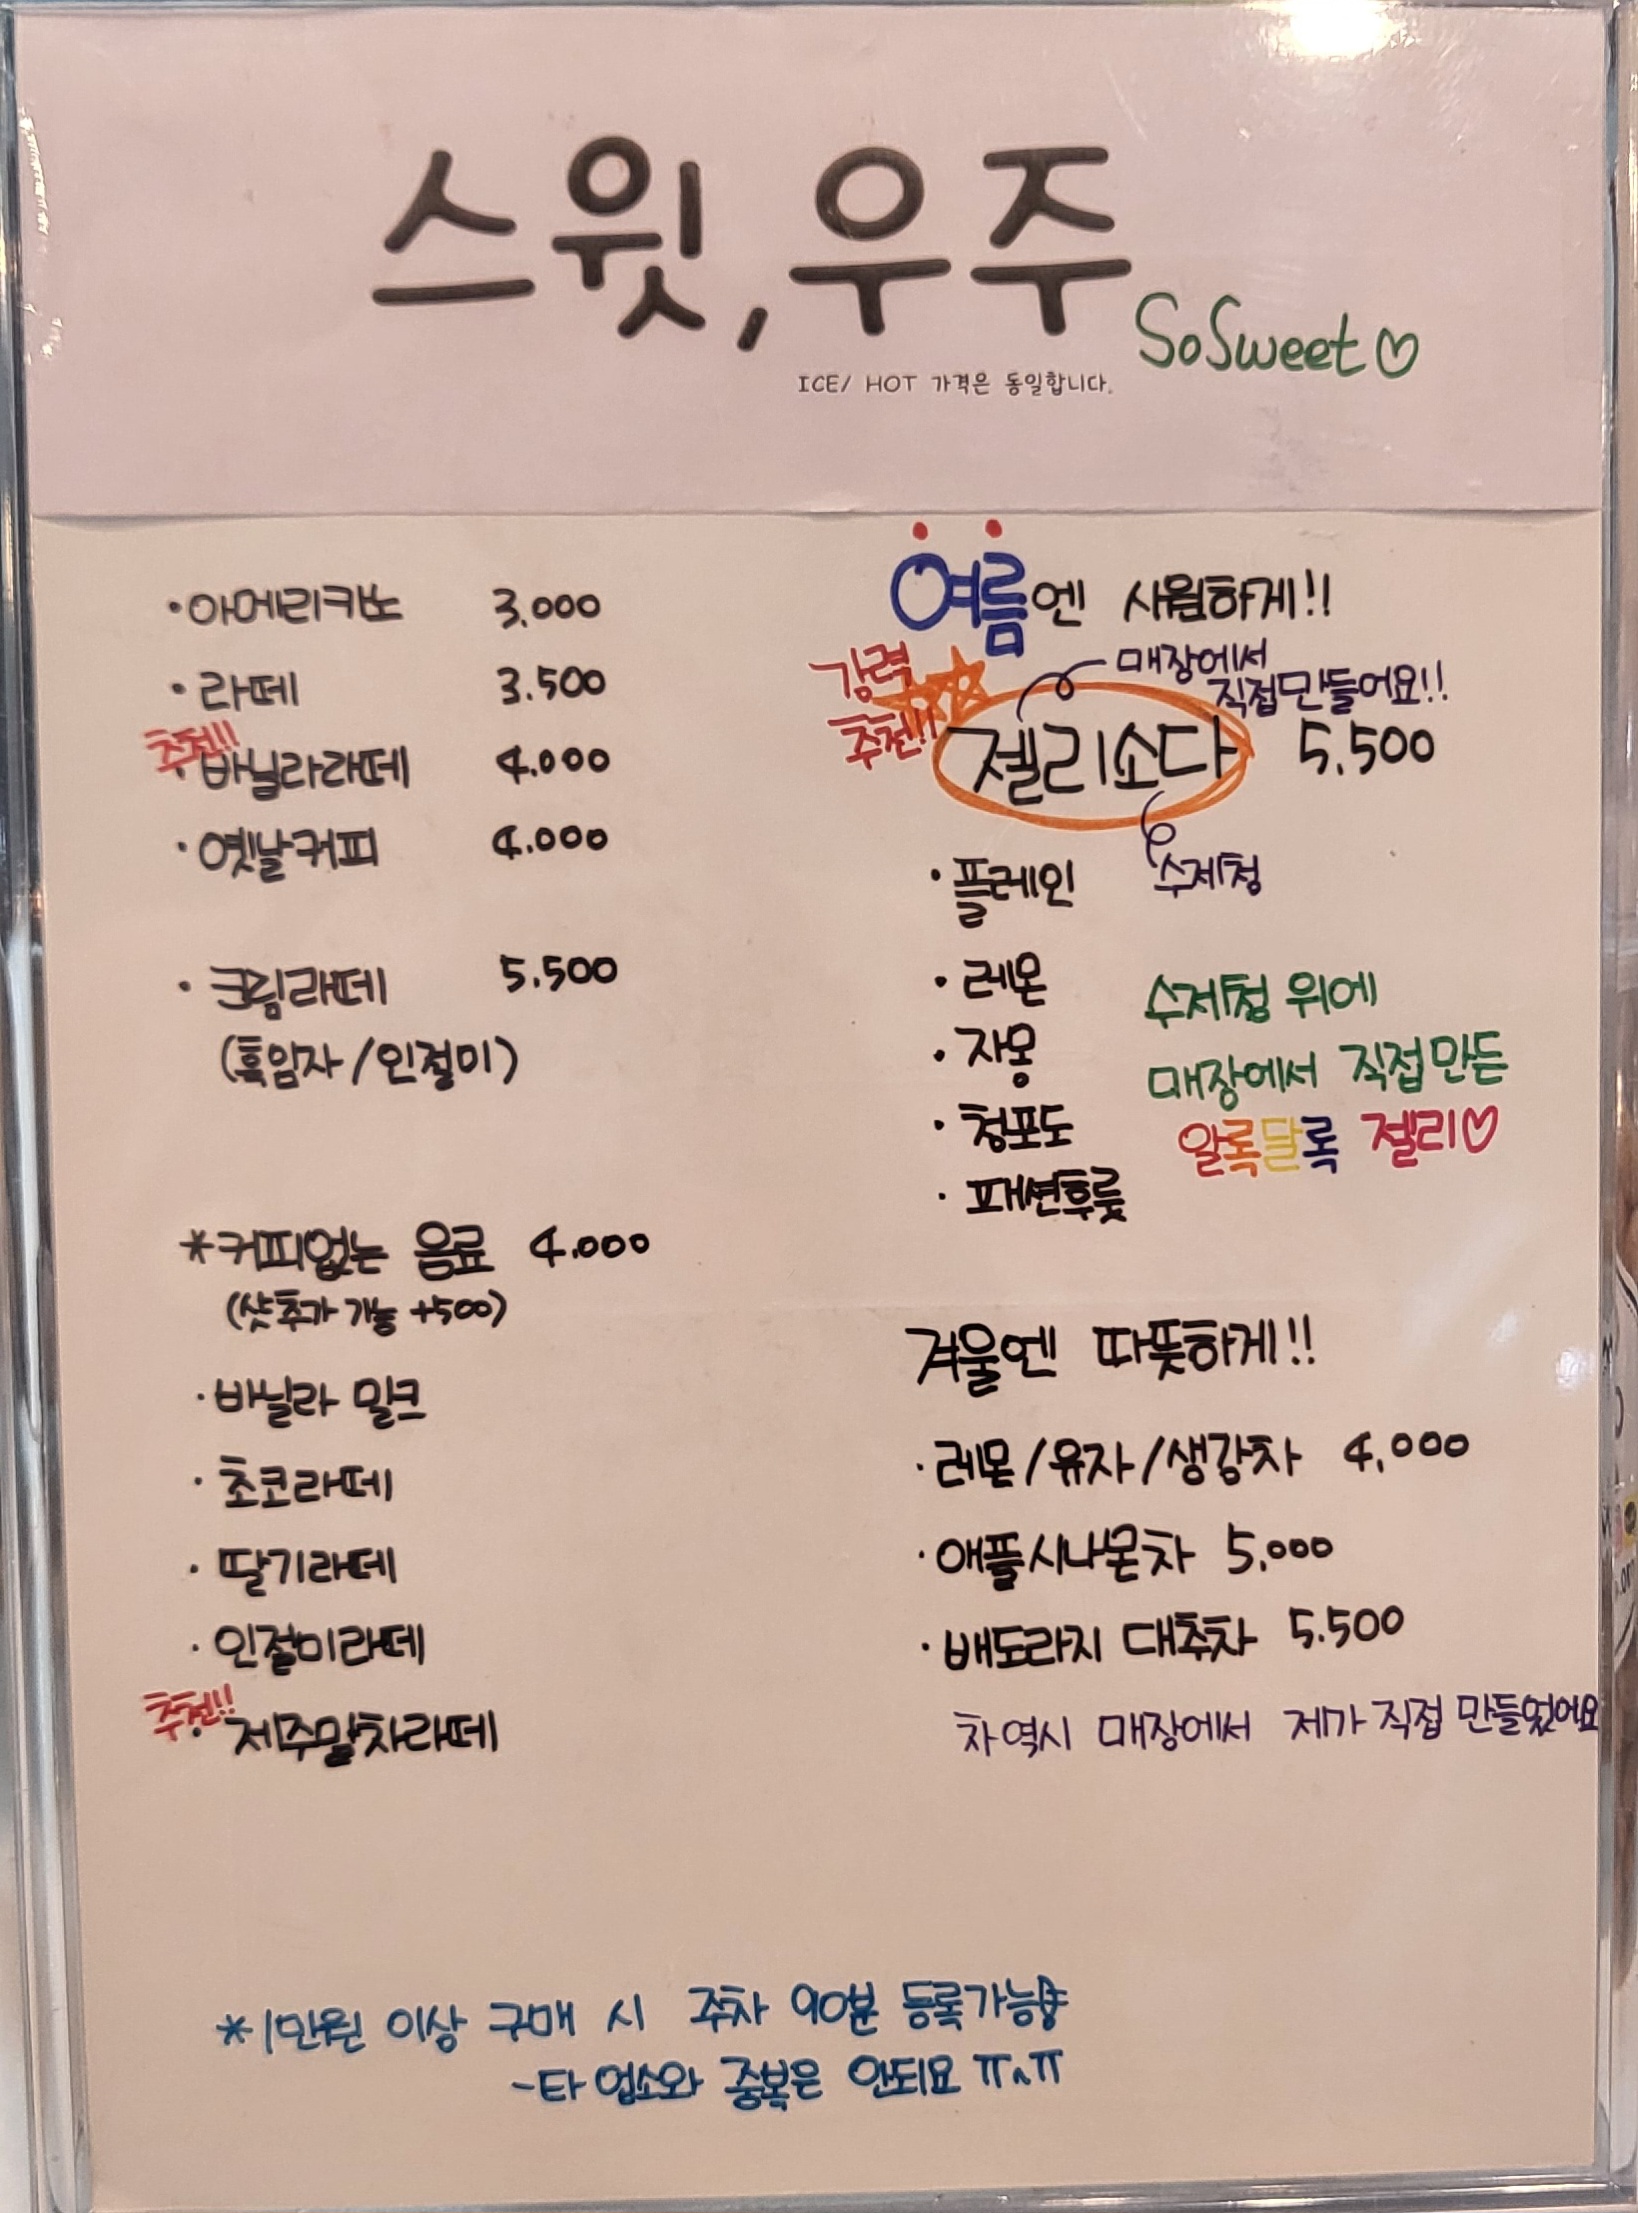 스윗, 우주
SoSweet♡
ICE/ HOT 가격은 동일합니다.
·아메리카노 3.000
·라떼 3.500
추천!!
·바닐라라떼 4.000
·옛날커피 4.000
·크림라떼 5.500
(흑임자/인절미)
*커피없는 음료 4.000
(샷추가 가능 +500)
·바닐라 밀크
·초코라떼
·딸기라떼
·인절미라떼
추천!!
·제주말차라떼
여름엔 시원하게!!
강력
추천!!
매장에서
직접만들어요!!
젤리소다 5.500
수제청
·플레인
·레몬
·자몽
·청포도
·패션후룻
수제청 위에
매장에서 직접만든
알록달록 젤리♡
겨울엔 따뜻하게!!
·레몬/유자/생강차 4,000
·애플시나몬차 5.000
·배도라지 대추차 5.500
차역시 매장에서 제가 직접 만들었어요
*1만원 이상 구매 시 주차 90분 등록가능
-타 업소와 중복은 안되요 ㅠ^ㅠ